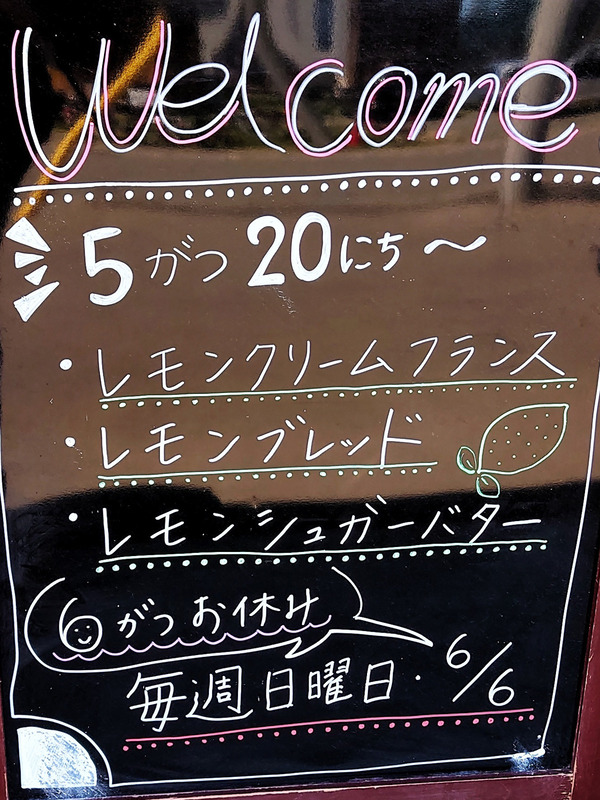 Welcome
5がつ20にち〜
・レモンクリームフランス
・レモンブレッド
・レモンシュガーバター
6がつお休み
毎週日曜日・6/6